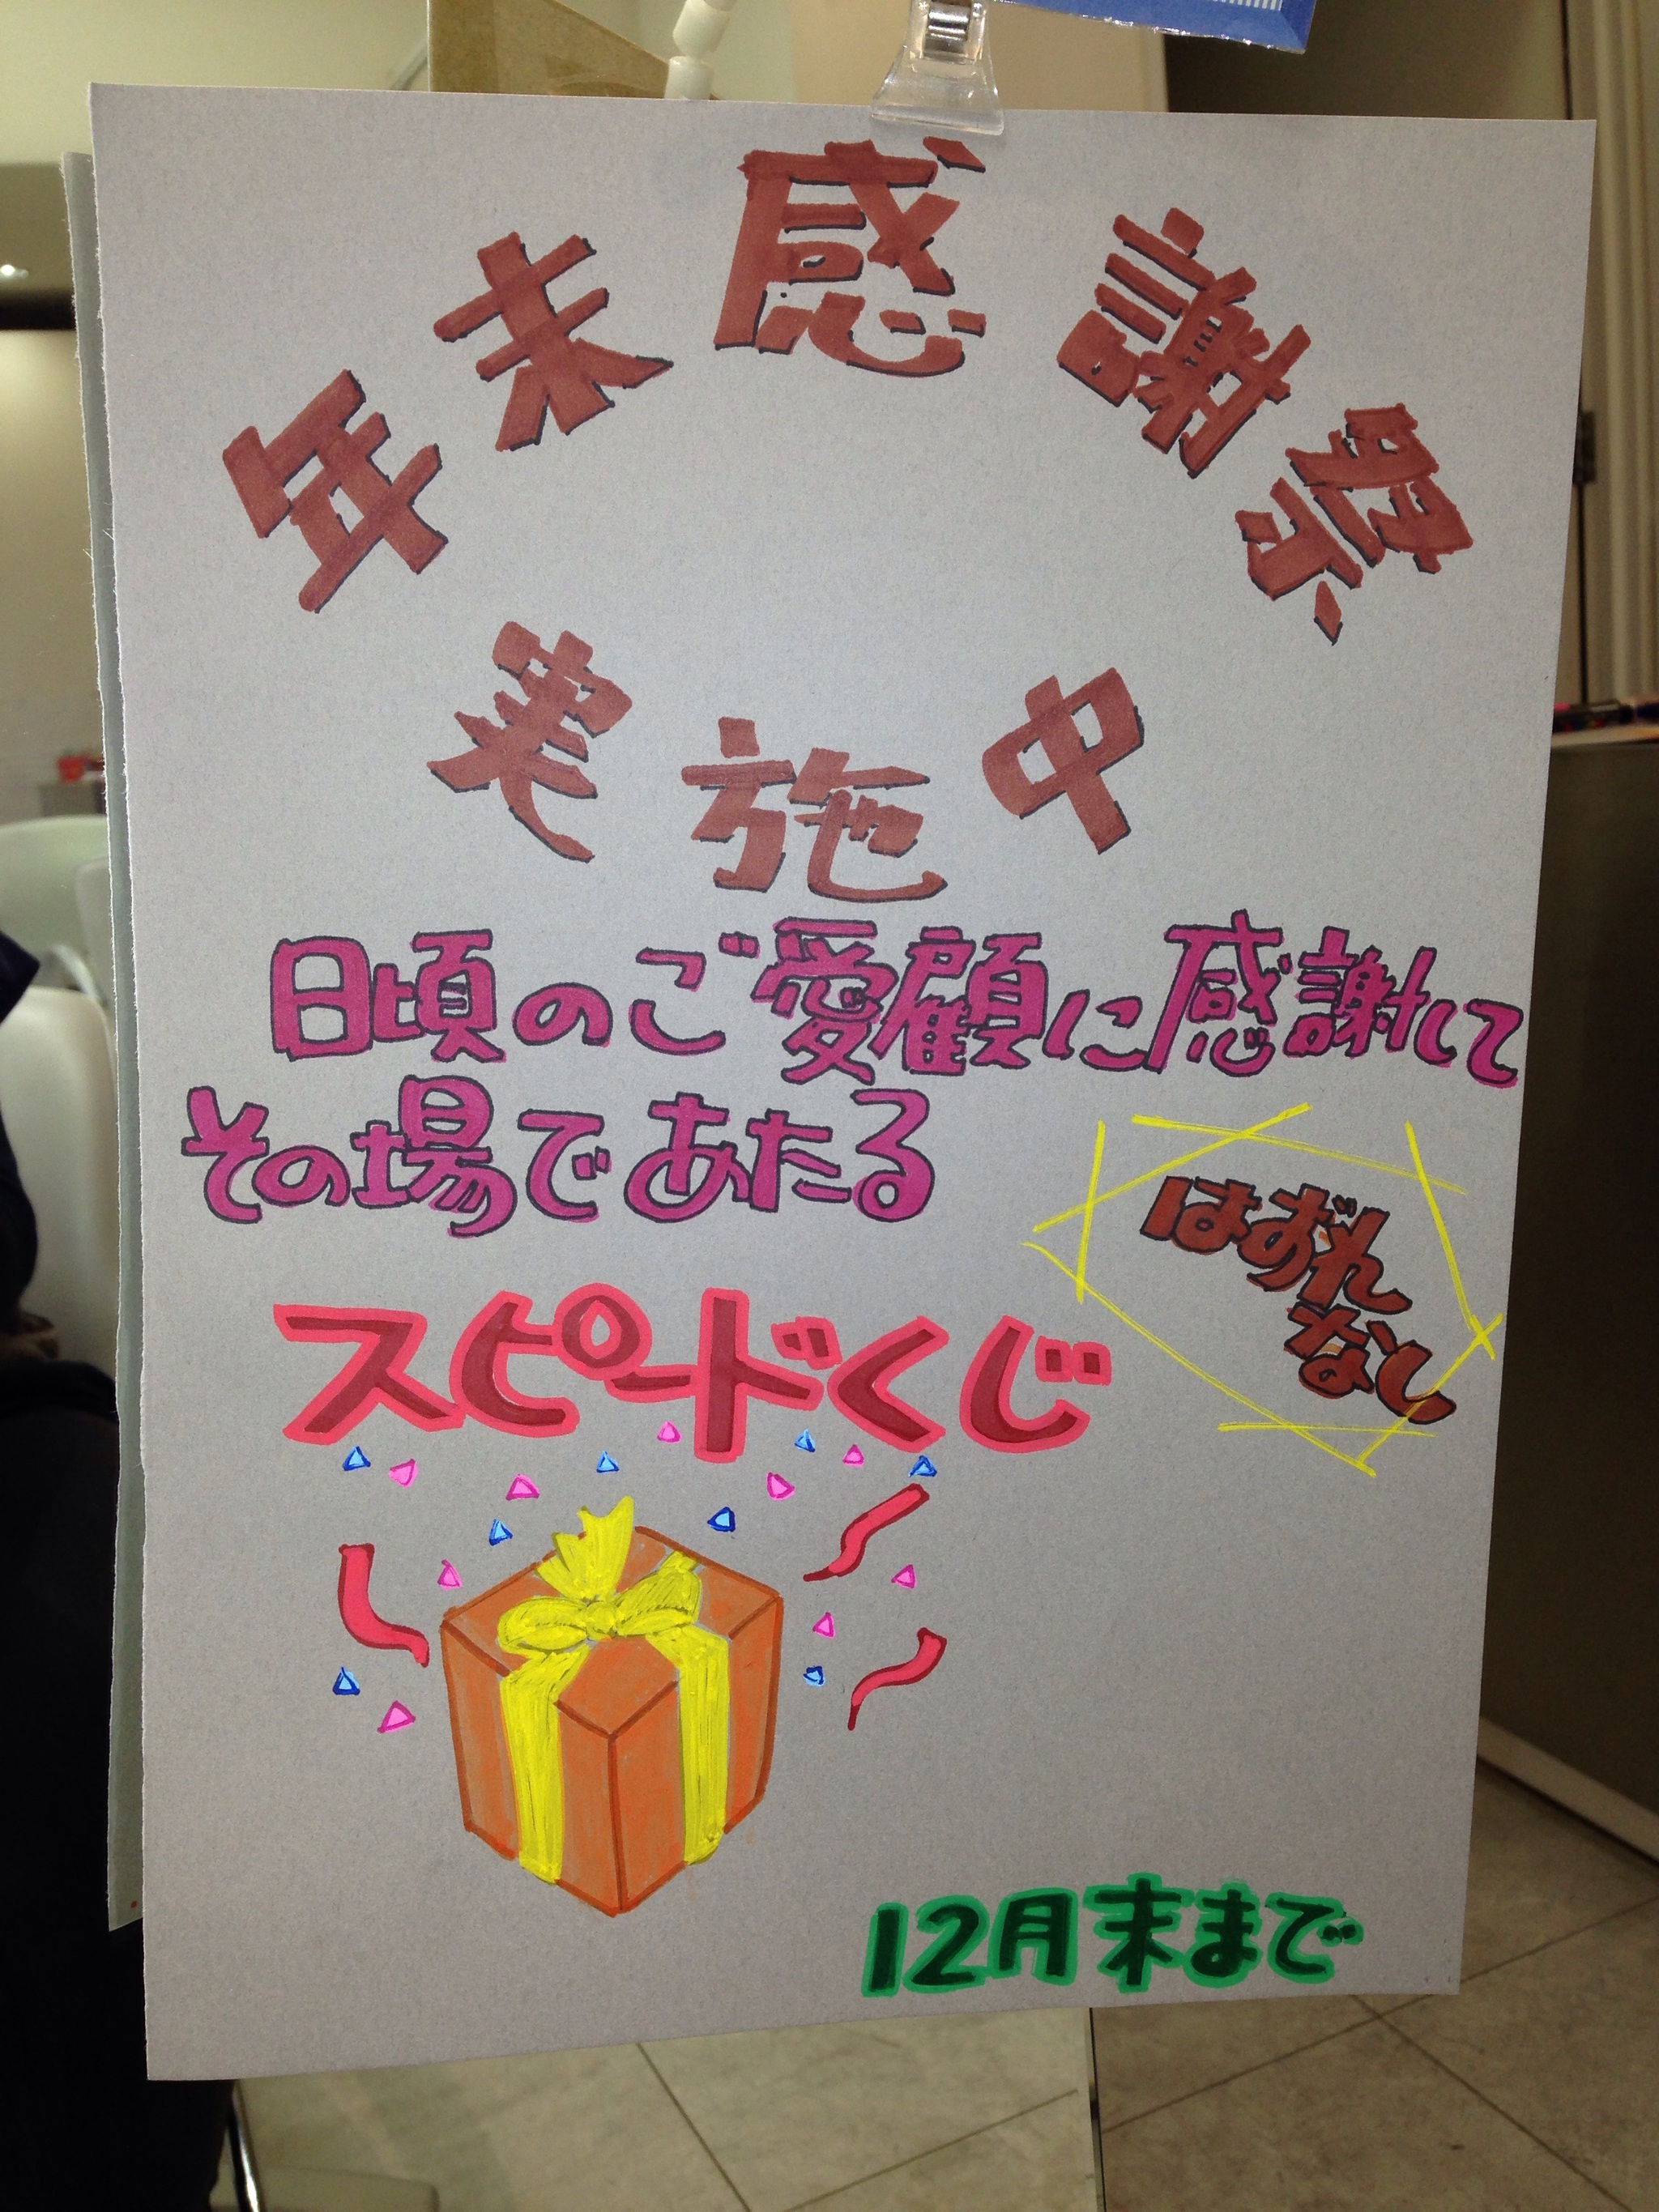 年末感謝祭
実施中
日頃のご愛顧に感謝して
その場であたる
はずれ
なし
スピードくじ
12月末まで